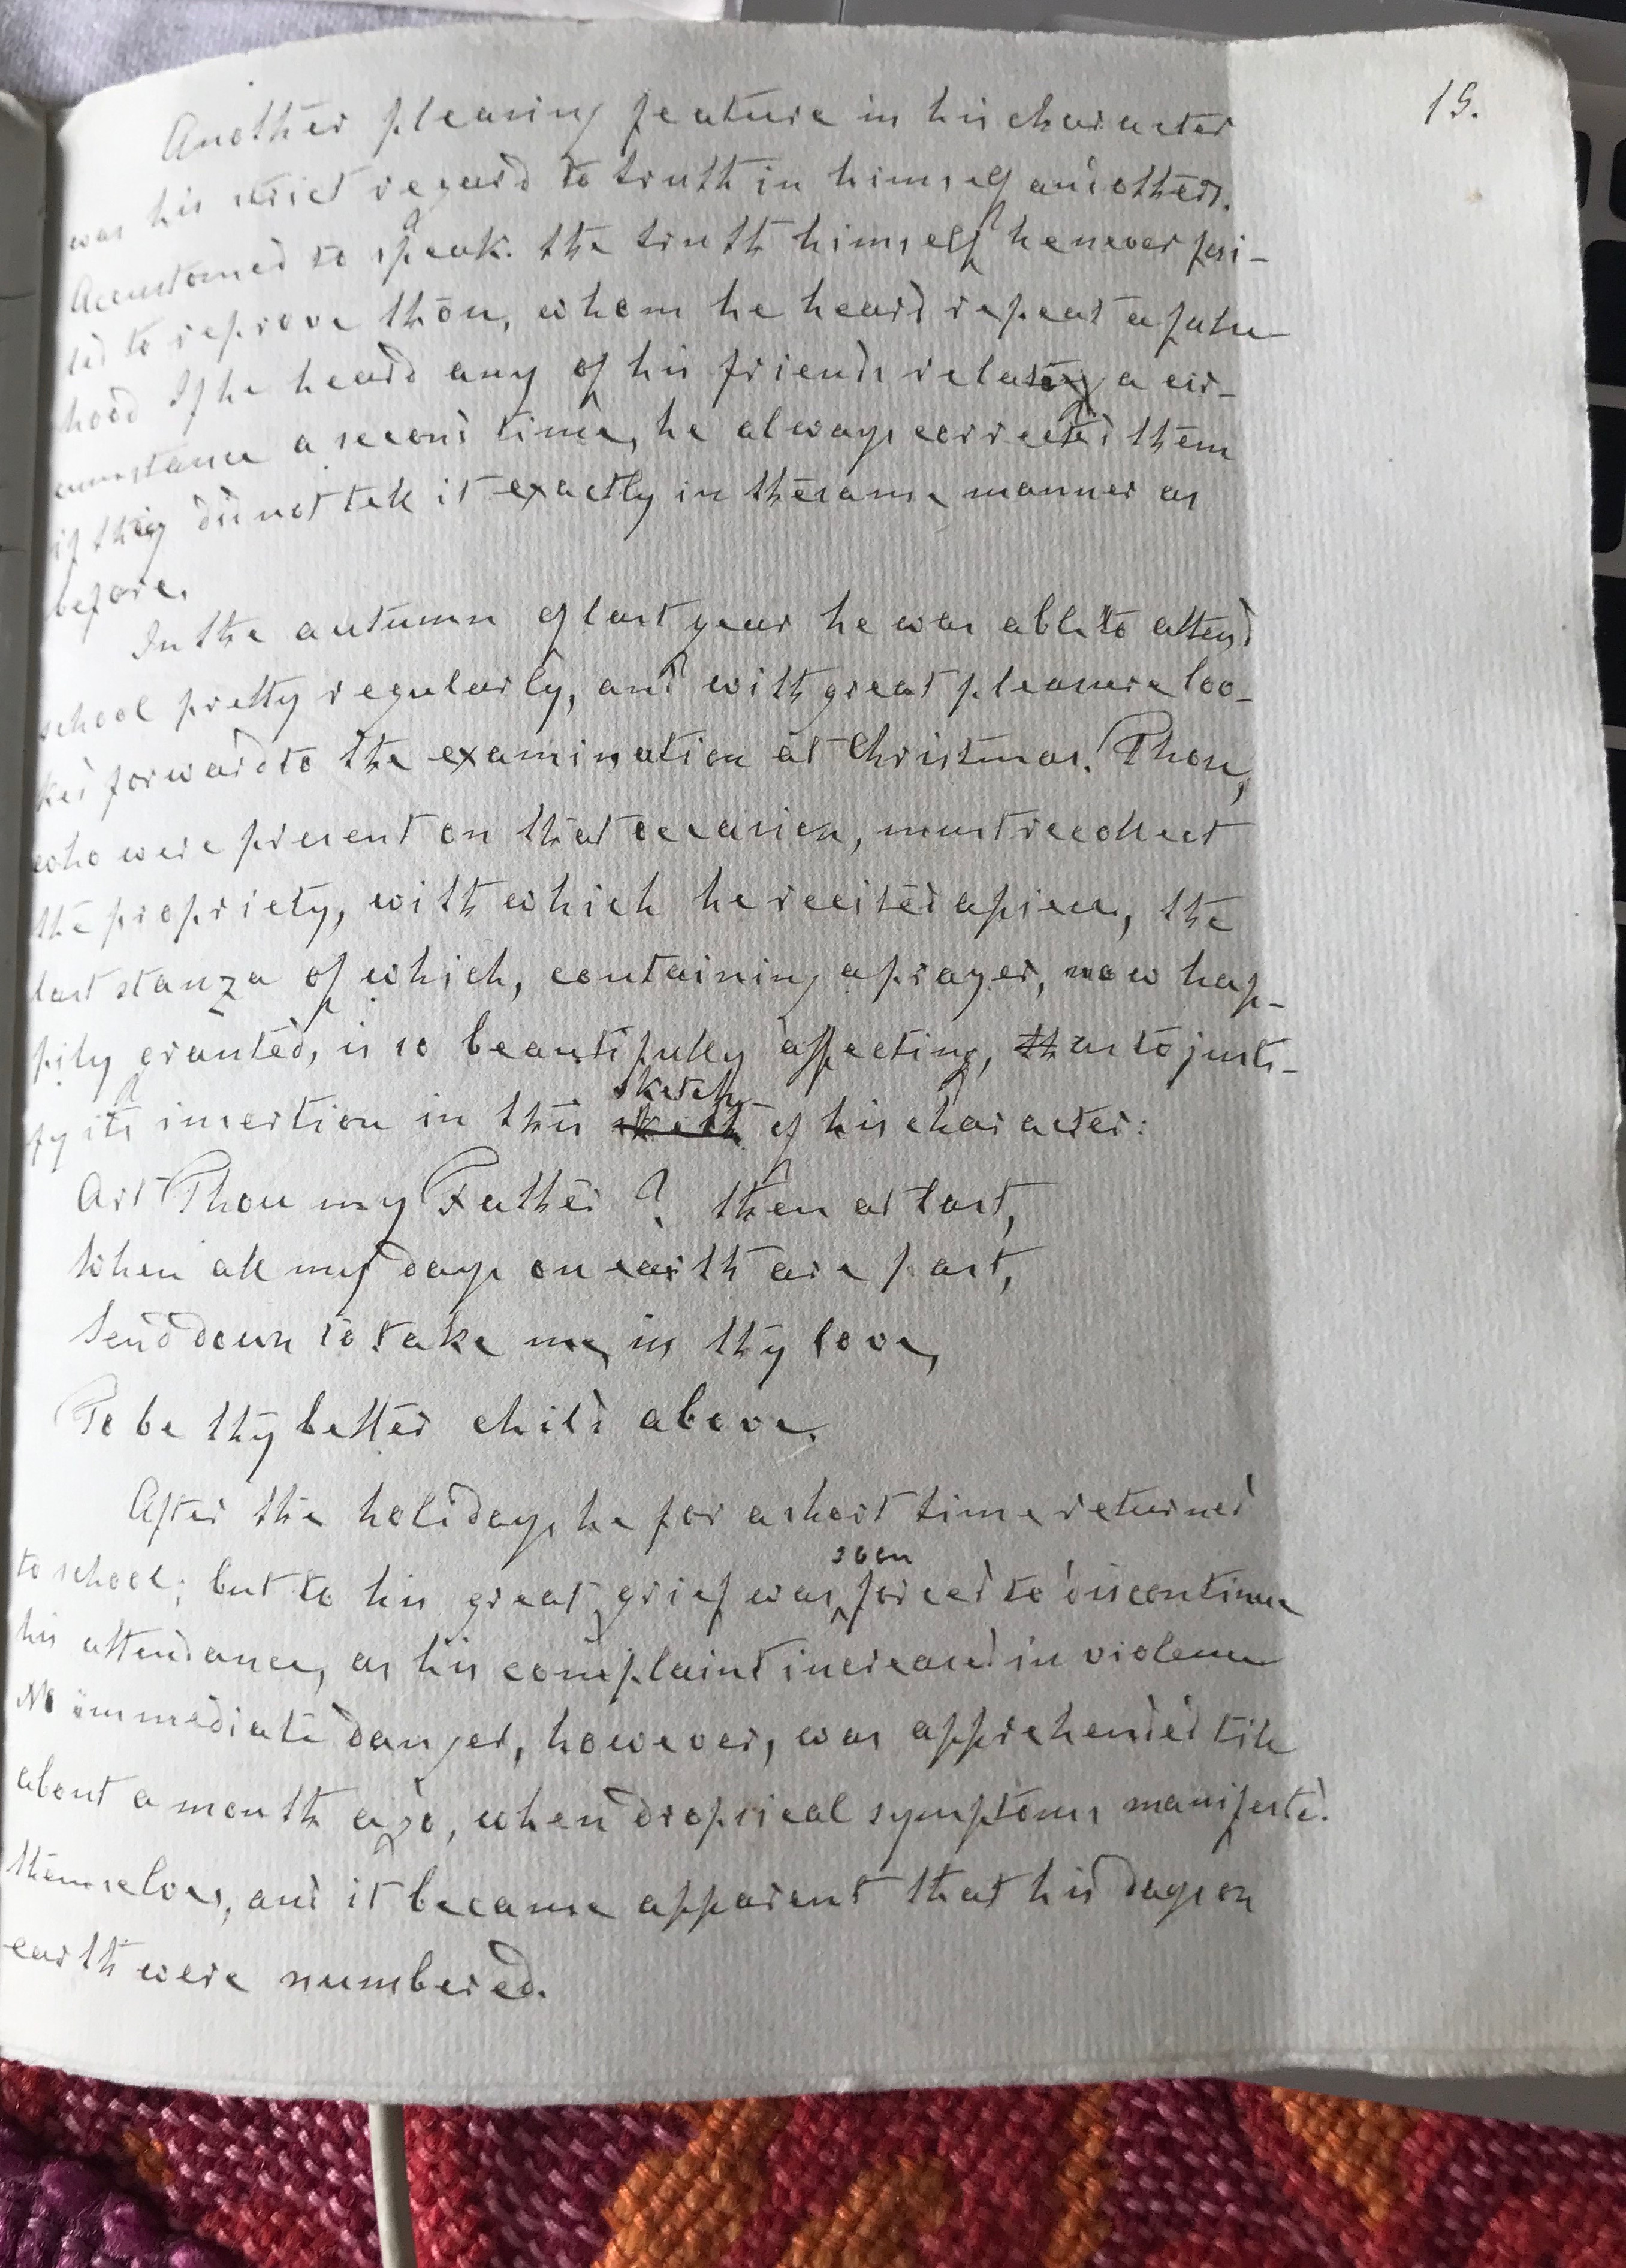 15.
Another pleasing feature in his character
was his strict regard to truth in himself and others.
Accustomed to speak the truth himself he never fai-
led to reprove those, whom he heard repeat a false-
hood If he heard any of his friends relating a cir-
cumstance a second time, he always corrected them
if they did not tell it exactly in the same manner as
before.
In the autumn of last year he was able to attend
school pretty regularly, and with great pleasure loo-
ked forward to the examination at Christmas. Those,
who were present on that occasion, must recollect
the propriety, with which he recited a piece, the
last stanza of which, containing a prayer, now hap-
pily granted, is so beautifully affecting, th as to justi-
fy its insertion in this sketch of his character:
Art Thou my Father? then at last,
When all my days on earth are past,
Send down to take me, in thy love,
To be thy better child above.
After the holidays, he for a short time returned
to school; but to his great grief was soon forced to discontinue
his attendance, as his complaint increased in violence
No immediate danger, however, was apprehended till
about a month ago, when dropsical symptoms manifested
themselves, and it became apparent that his days on
earth were numbered.